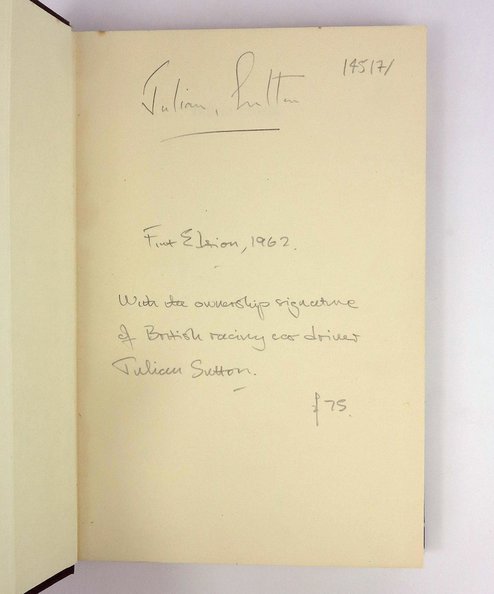 Julian Sutton
14517/
First Edition, 1962.
With the ownership signature
of British racing car driver
Julian Sutton.
£75.